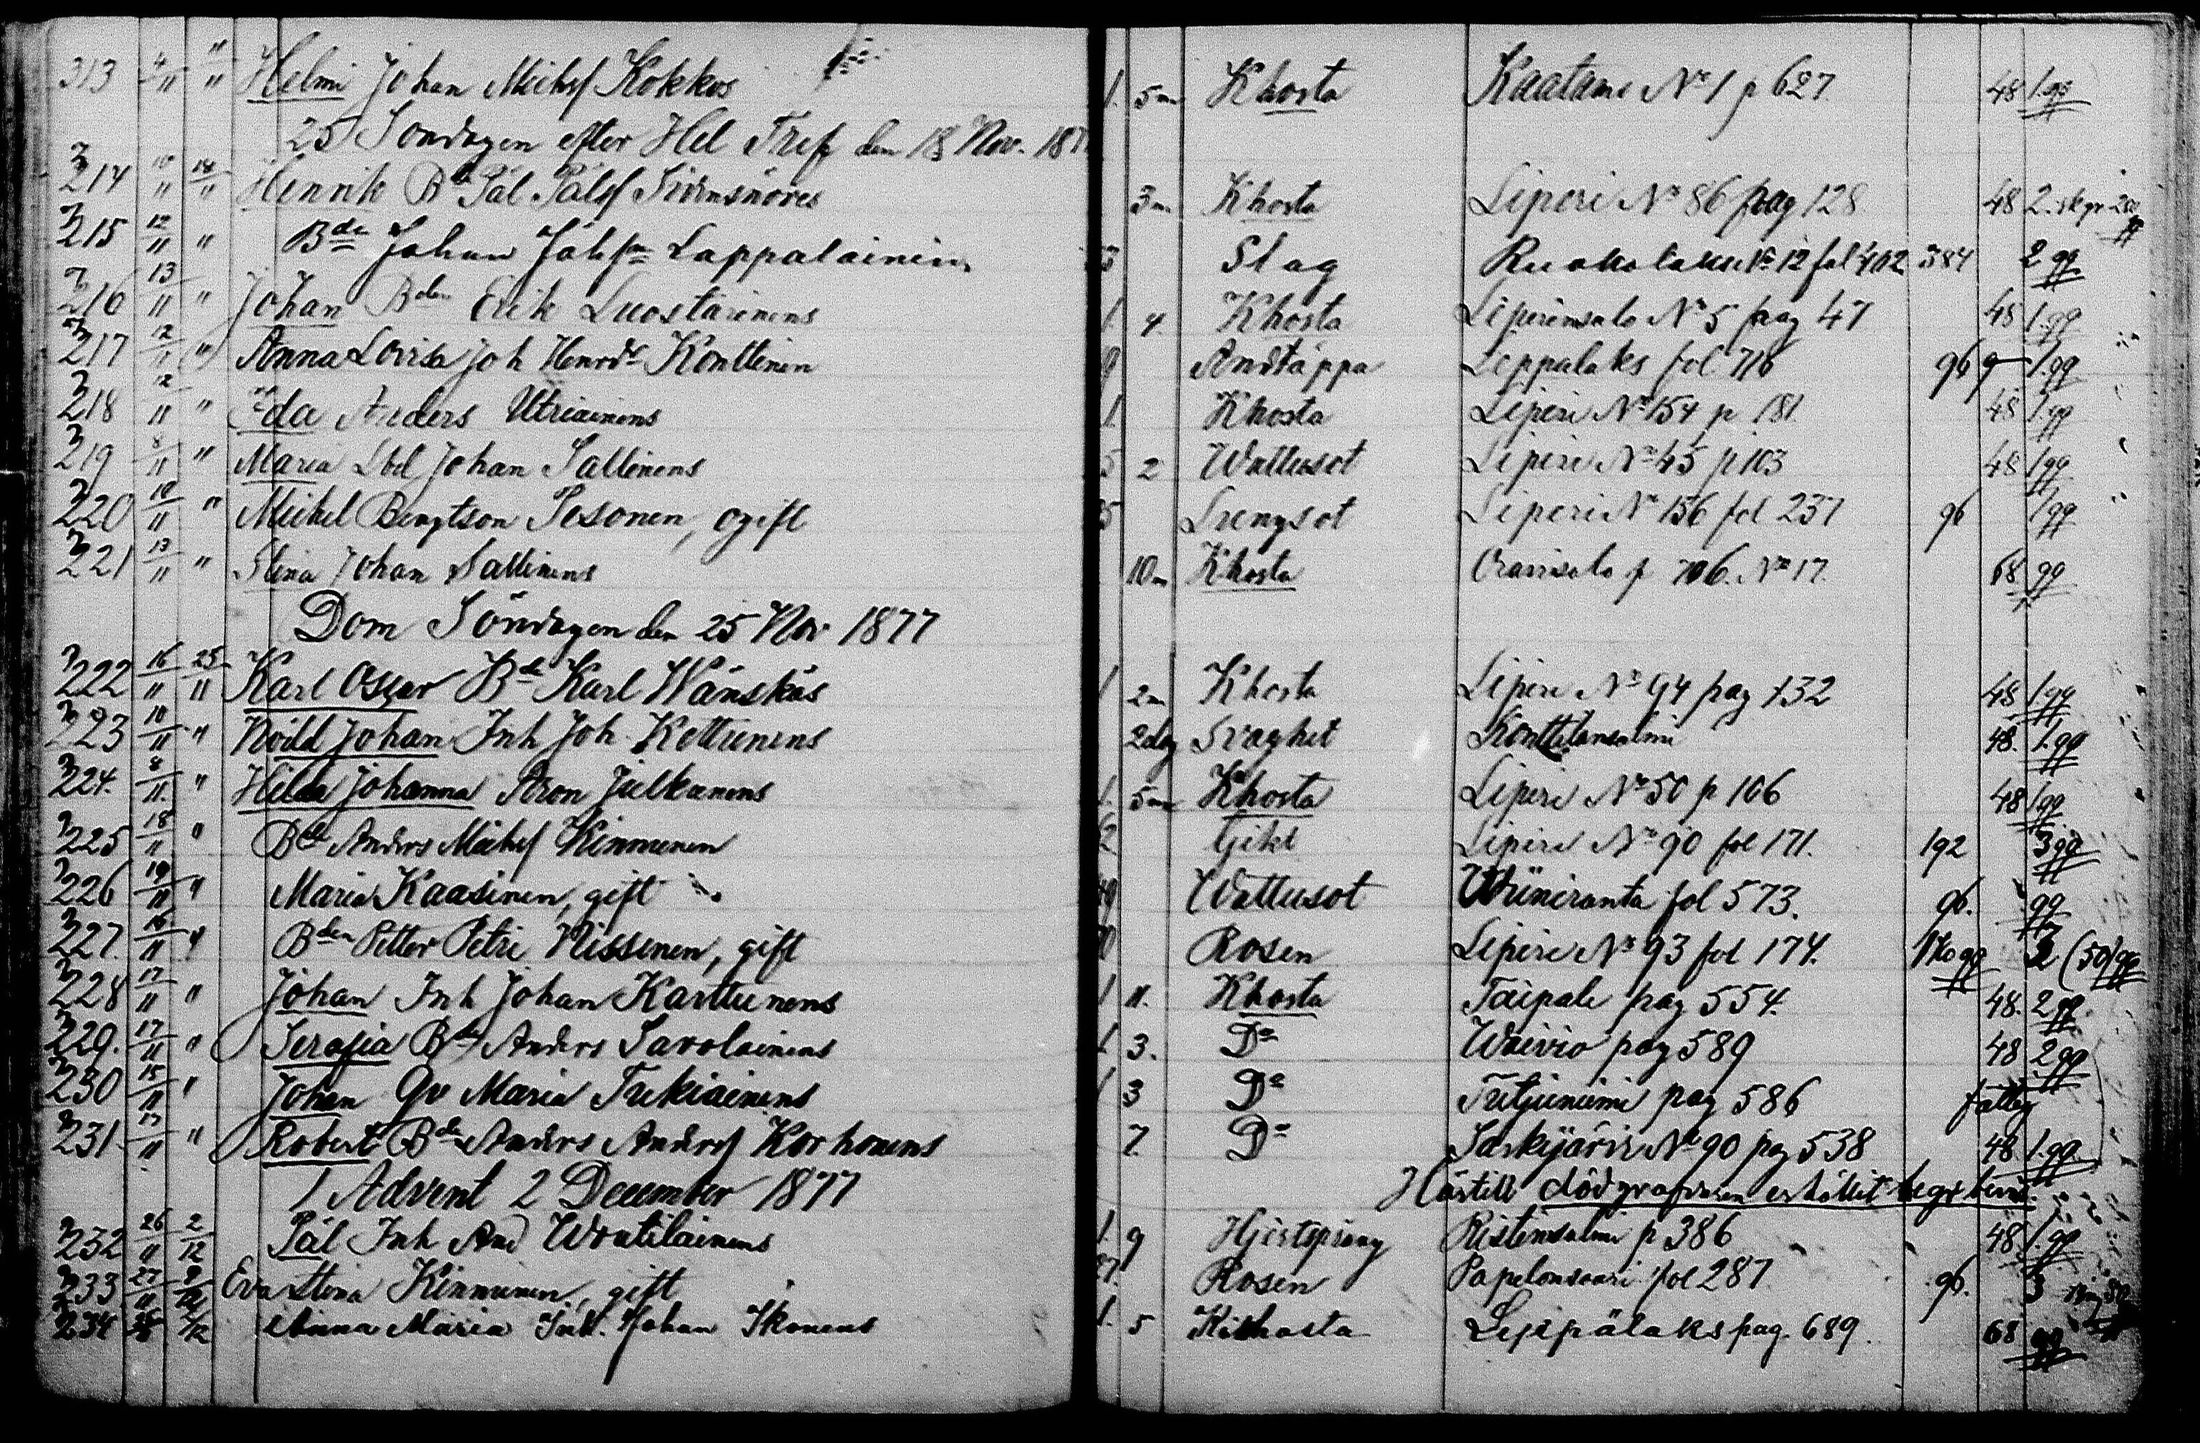 313 4/11 " Helmi Johan Michelss Kokkos 1. 5m Khosta Kaatamo No 1 p 627. 48 1.gg
25 Söndagen efter Hel Tref den 18 Nov. 187
314 10/11 18/" Henrik Bd Pål Pålss 3m Khosta Liperi No 86 pag 128 48 2.
315 12/11 " Bde Johan Johss Lappalainen 3 Slag Ruokolaks No 12 fol 402 384 2 gg
316 13/11 " Johan Bden Erik Luostarinens 1. 4 Khosta Liperinsalo No 5 pag 47 48 1.gg
317 12/11 " Anna Lovisa Joh Henrdr Konttinen 9 Andtäppa Leppälaks fol. 716 96 1.gg
318 12/11 " Ida Anders Utriainens 1. Khosta Liperi No 154 p 181. 48 1.gg
319 8/11 " Maria Lbd Johan Sallinens 5 2 Wattusot Liperi No 45 p 103 48 1gg
320 10/11 " Michel Bengtson Pesonen, ogift 5 Lungsot Liperi No 156 fol 237 96 1gg
321 13/11 " Stina Johan Sallinens 10m Khosta Oravisalo p 706. No 17. 68 gg
Dom Söndagen den 25 Nov 1877
322 16/11 25/11 Karl Oscar Bd Karl Wänskäs 1 2m Khosta Liperi No 94 pag 132 48 1.gg
323 10/11 " Nödd Johan Inh Joh. Kettunens 2 dag Svaghet Konttilansalmi 48. 1.gg
324. 8/11. " Hilda Johanna Aron Julkunens 1. 5m Khosta Liperi No 50 p 106 48 1gg
325 18/11 " Bde Anders Michelss Kinnunen 2. Gikt Liperi No 90 fol 171. 192 3gg
326 19/11 " Maria Kaasinen, gift 49 Wattusot Wiiniranta fol 573. 96. gg
327. 16/11 " Bden Petter Petri Nissinen, gift 70 Rosen Liperi No 93 fol 174. (50) gg
328 17/11 " Johan Inh Johan Karttunens 1 11. Khosta Taipale pag 554. 48. 2gg
329. 17/11 " Serafia Bde Anders Savolainens 1 3. Do Waivio pag 589 48 2gg
330 15/11 " Johan Qv Maria Tukiainens 1 3 Do Tutjuniemi pag 586 fattig
331. 17/11 " Robert Bde Anders Anderss Korhonens 7. Do Särkijärvi No 90 pag 538 48. 1.gg
1 Advent 2 December 1877 Härtill dödgrafvaren erhållit
332 26/11 2/12 Pål Inh And Wentiläinens 1. 9 Hjertsprång Ristinsalmi p 386 48 1.gg
333 27/11 Eva Stina Kinnunen, gift 7. Rosen Papelonsaari fol 287. 96. 3
334 2/12 Anna Maria Inh. Johan Ikonens 1. 5 Kikhosta Leppälaks pag. 689. 68 gg